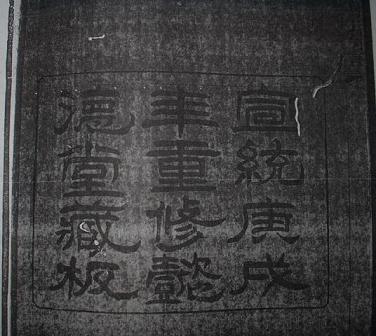 宣統庚戌
年重修懿
德堂藏板